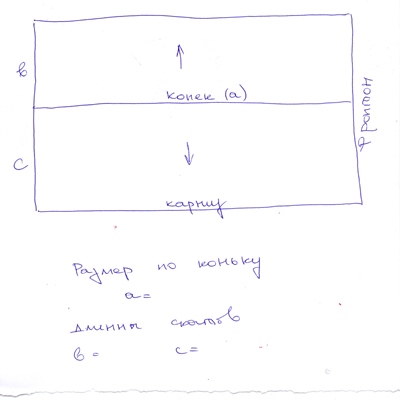 в
конек (а)
фронтон
с
карниз
Размер по коньку
а=
длинны скатов
в=   с=